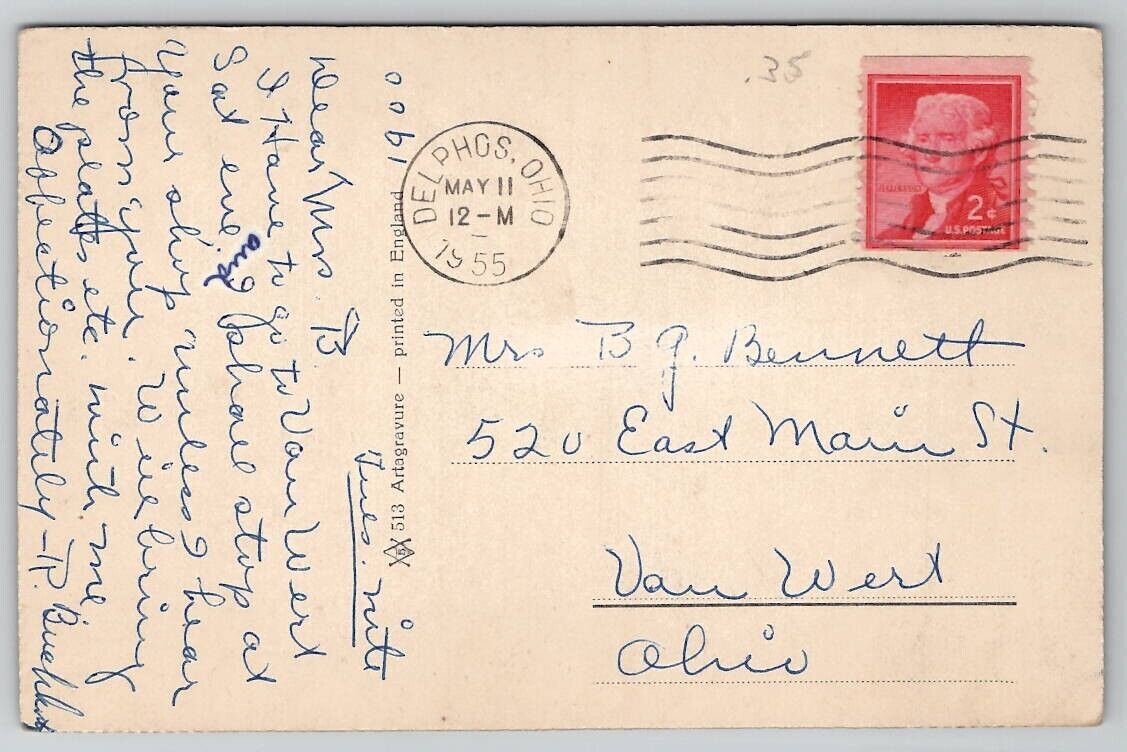 .35
DELPHOS, OHIO
MAY 11
12-M
1955
JEFFERSON
2¢
U.S. POSTAGE
00610
513 Artagravure — printed in England
Tues. nite
Dear Mrs. B
I Have to go to Van Wert
Sat eve. and I shall stop at
your shop unless I hear
from you. Will bring
the plates etc. with me
Affectionately - R.
Mrs B J. Bennett
520 East Main St.
Van Wert
Ohio